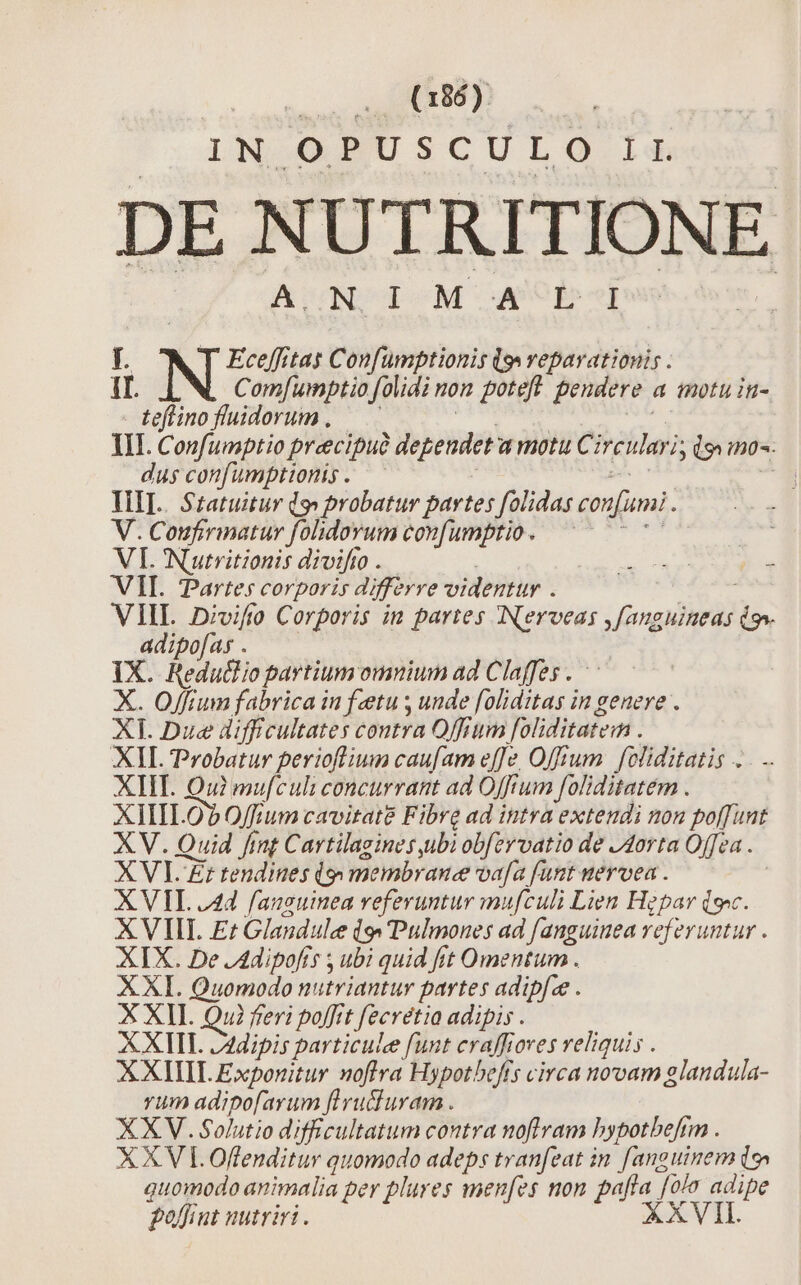 (186)
IN OPUSCULO II.
DE NUTRITIONE
ANIMALI
I. NEceſſitas Conſumptionis & reparationis.
II. Comſumptio ſolidi non poteſt pendere a motu in-
teſtino fluidorum.
III. Conſumptio præcipuè dependet a motu Circulari; & mo-
dus conſumptionis.
IIII. Statuitur & probatur partes ſolidas conſumi.
V. Confirmatur ſolidorum conſumptio.
VI. Nutritionis diviſio.
VII. Partes corporis differre videntur.
VIII. Diviſio Corporis in partes Nerveas, ſanguineas &
adipoſas.
IX. Reductio partium omnium ad Claſſes.
X. Oſſium fabrica in fætu; unde ſoliditas in genere.
XI. Duæ difficultates contra Oſſium ſoliditatem.
XII. Probatur perioſtium cauſam eſſe Oſſium ſoliditatis.
XIII. Quì muſculi concurrant ad Oſſium ſoliditatem.
XIIII. Ob Oſſium cavitatē Fibrę ad intra extendi non poſſunt
XV. Quid ſint Cartilagines, ubi obſervatio de Aorta Oſſea.
XVI. Et tendines & membranæ vaſa ſunt nervea.
XVII. Ad ſanguinea referuntur muſculi Lien Hepar &c.
XVIII. Et Glandulæ & Pulmones ad ſanguinea referuntur.
XIX. De Adipoſis; ubi quid ſit Omentum.
XXI. Quomodo nutriantur partes adipſæ.
XXII. Quì fieri poſſit ſecretio adipis.
XXIII. Adipis particulæ ſunt craſſiores reliquis.
XXIIII. Exponitur noſtra Hypotheſis circa novam glandula-
rum adipoſarum ſtructuram.
XXV. Solutio difficultatum contra noſtram hypotheſim.
XXVI. Oſtenditur quomodo adeps tranſeat in ſanguinem &
quomodo animalia per plures menſes non paſta ſolo adipe
poſſint nutriri.
XXVII.